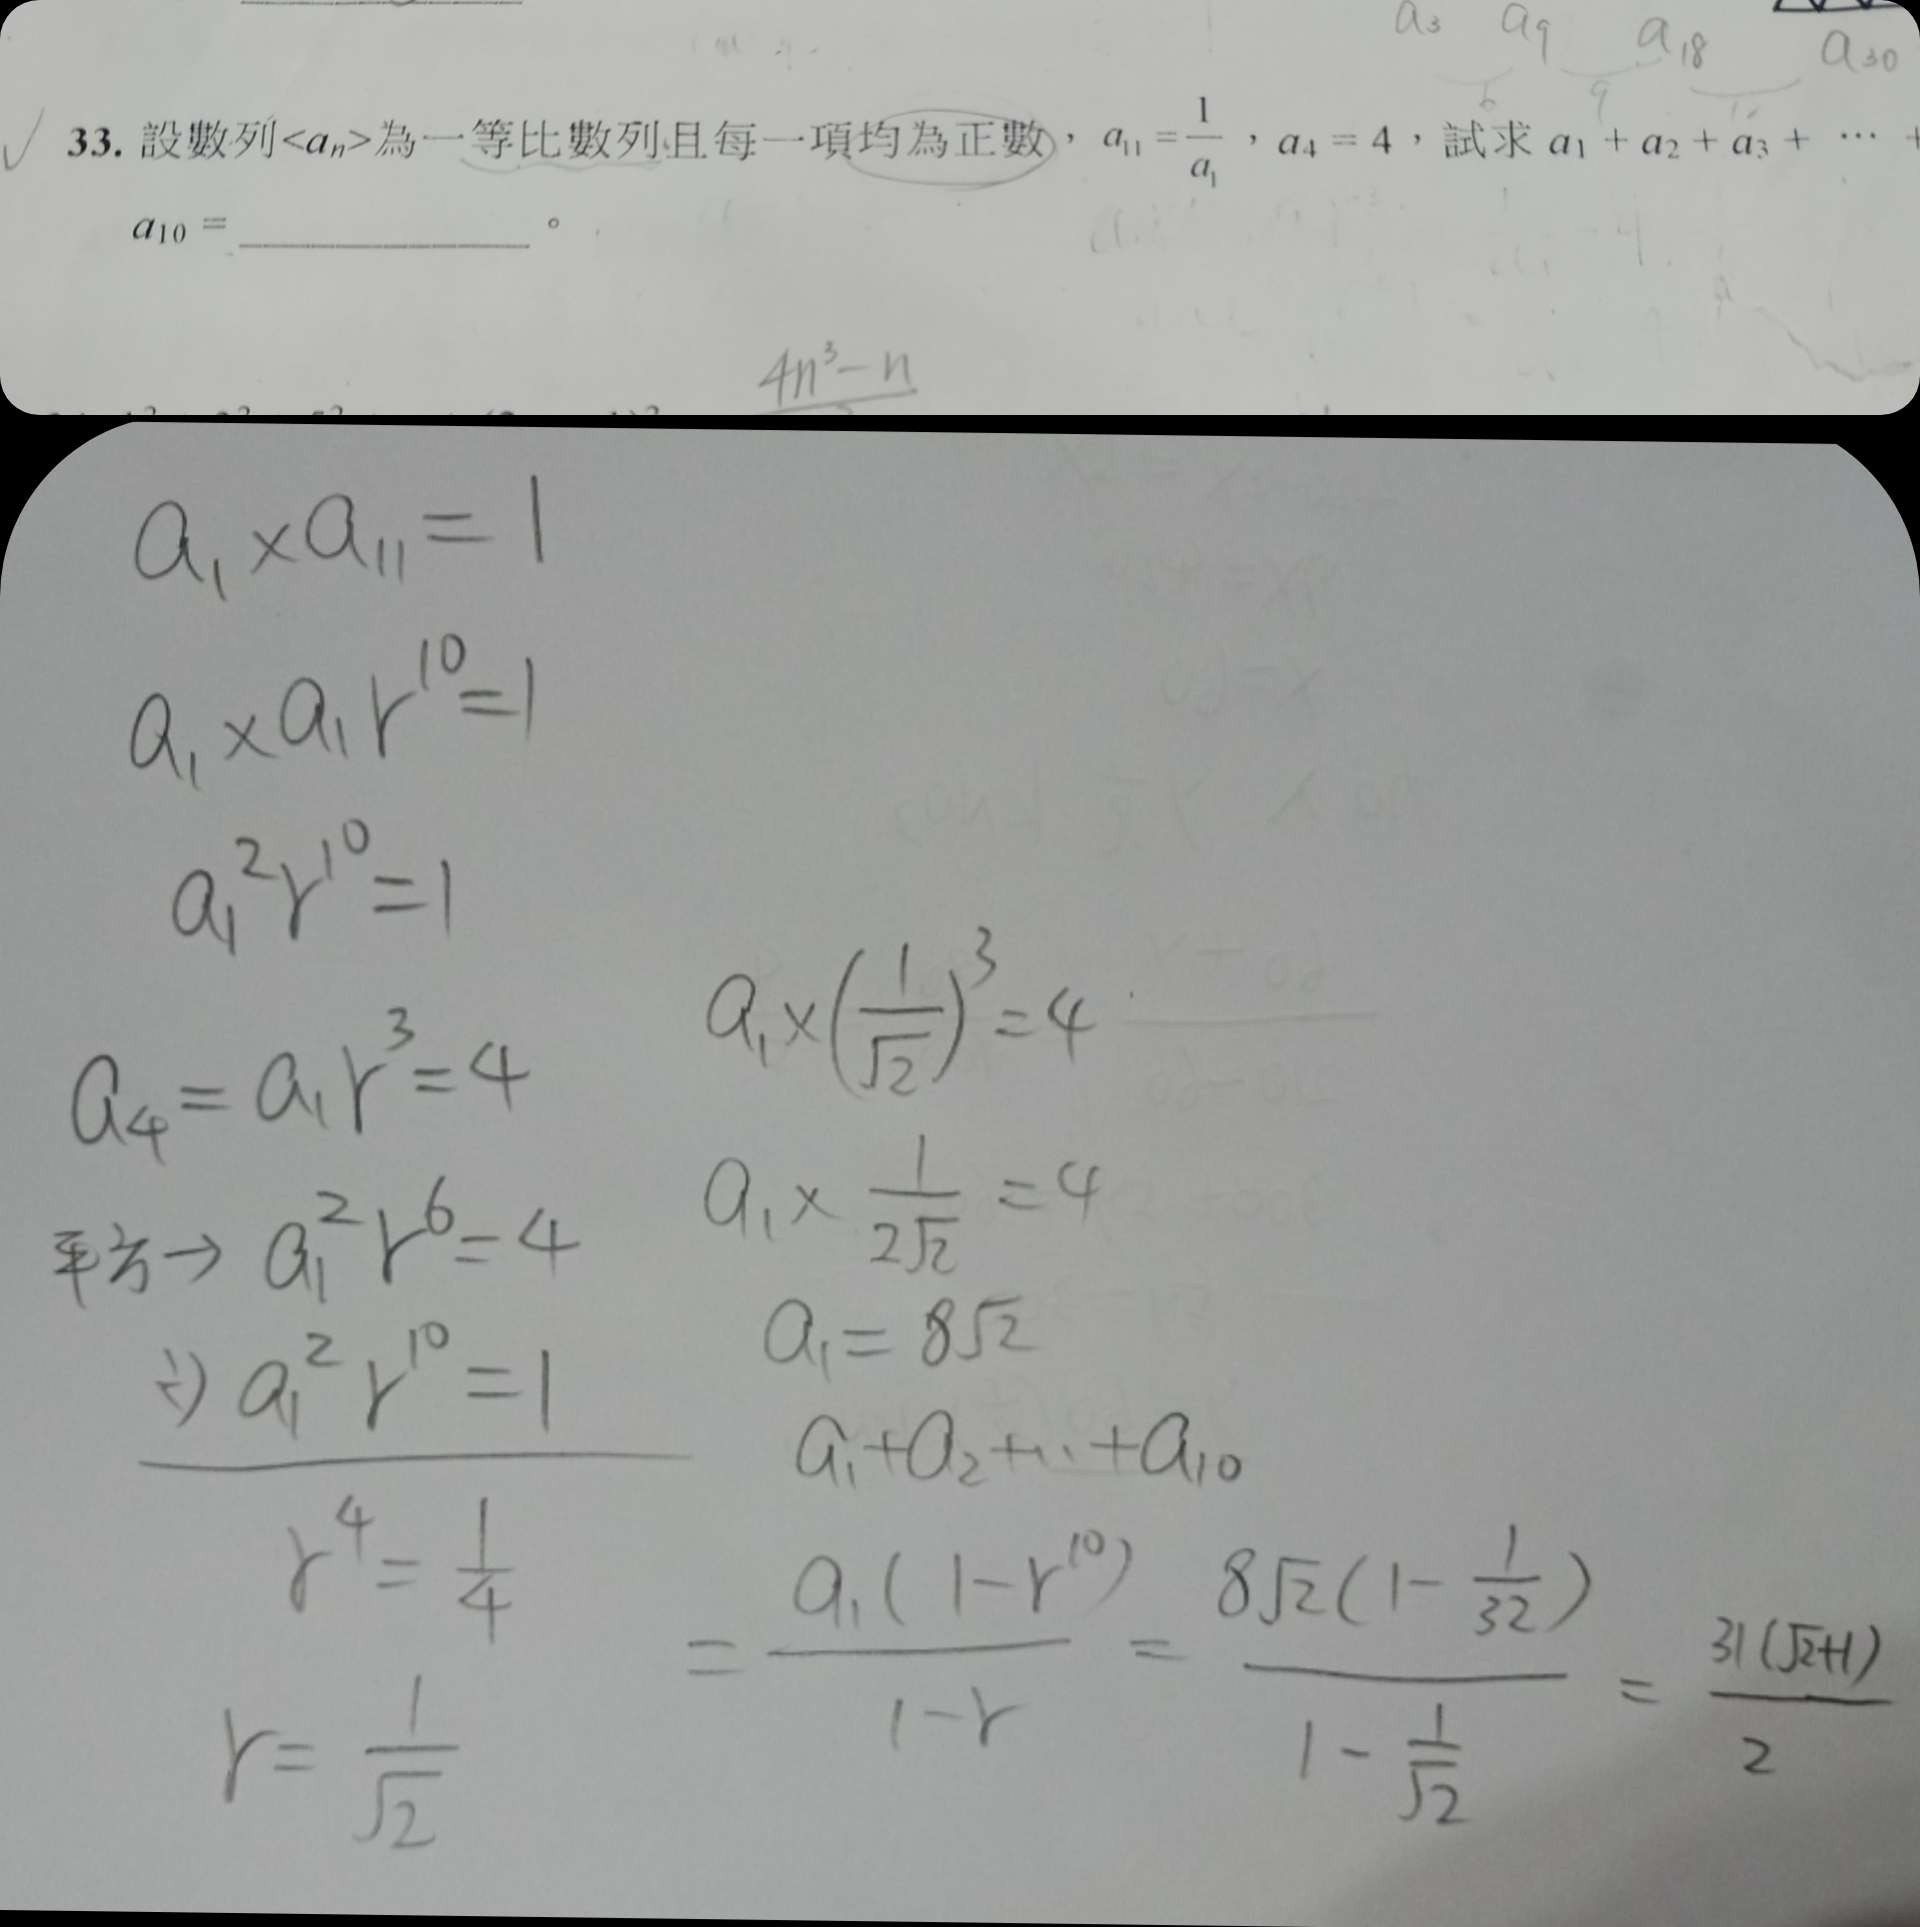 a₃ a₉ a₁₈ a₃₀
6 9 12
33. 設數列<aₙ>為一等比數列且每一項均為正數，a₁₁ = 1/a₁，a₄ = 4，試求 a₁ + a₂ + a₃ + ⋯ +
a₁₀ = ＿＿＿＿＿＿。
4n³−n
a₁×a₁₁=1
a₁×a₁r¹⁰=1
a₁²r¹⁰=1
a₄=a₁r³=4
平方→ a₁²r⁶=4
÷) a₁²r¹⁰=1
r⁴=1/4
r=1/√2
a₁×(1/√2)³=4
a₁×1/(2√2)=4
a₁=8√2
a₁+a₂+⋯+a₁₀
= a₁(1−r¹⁰)/(1−r) = 8√2(1−1/32)/(1−1/√2) = 31(√2+1)/2